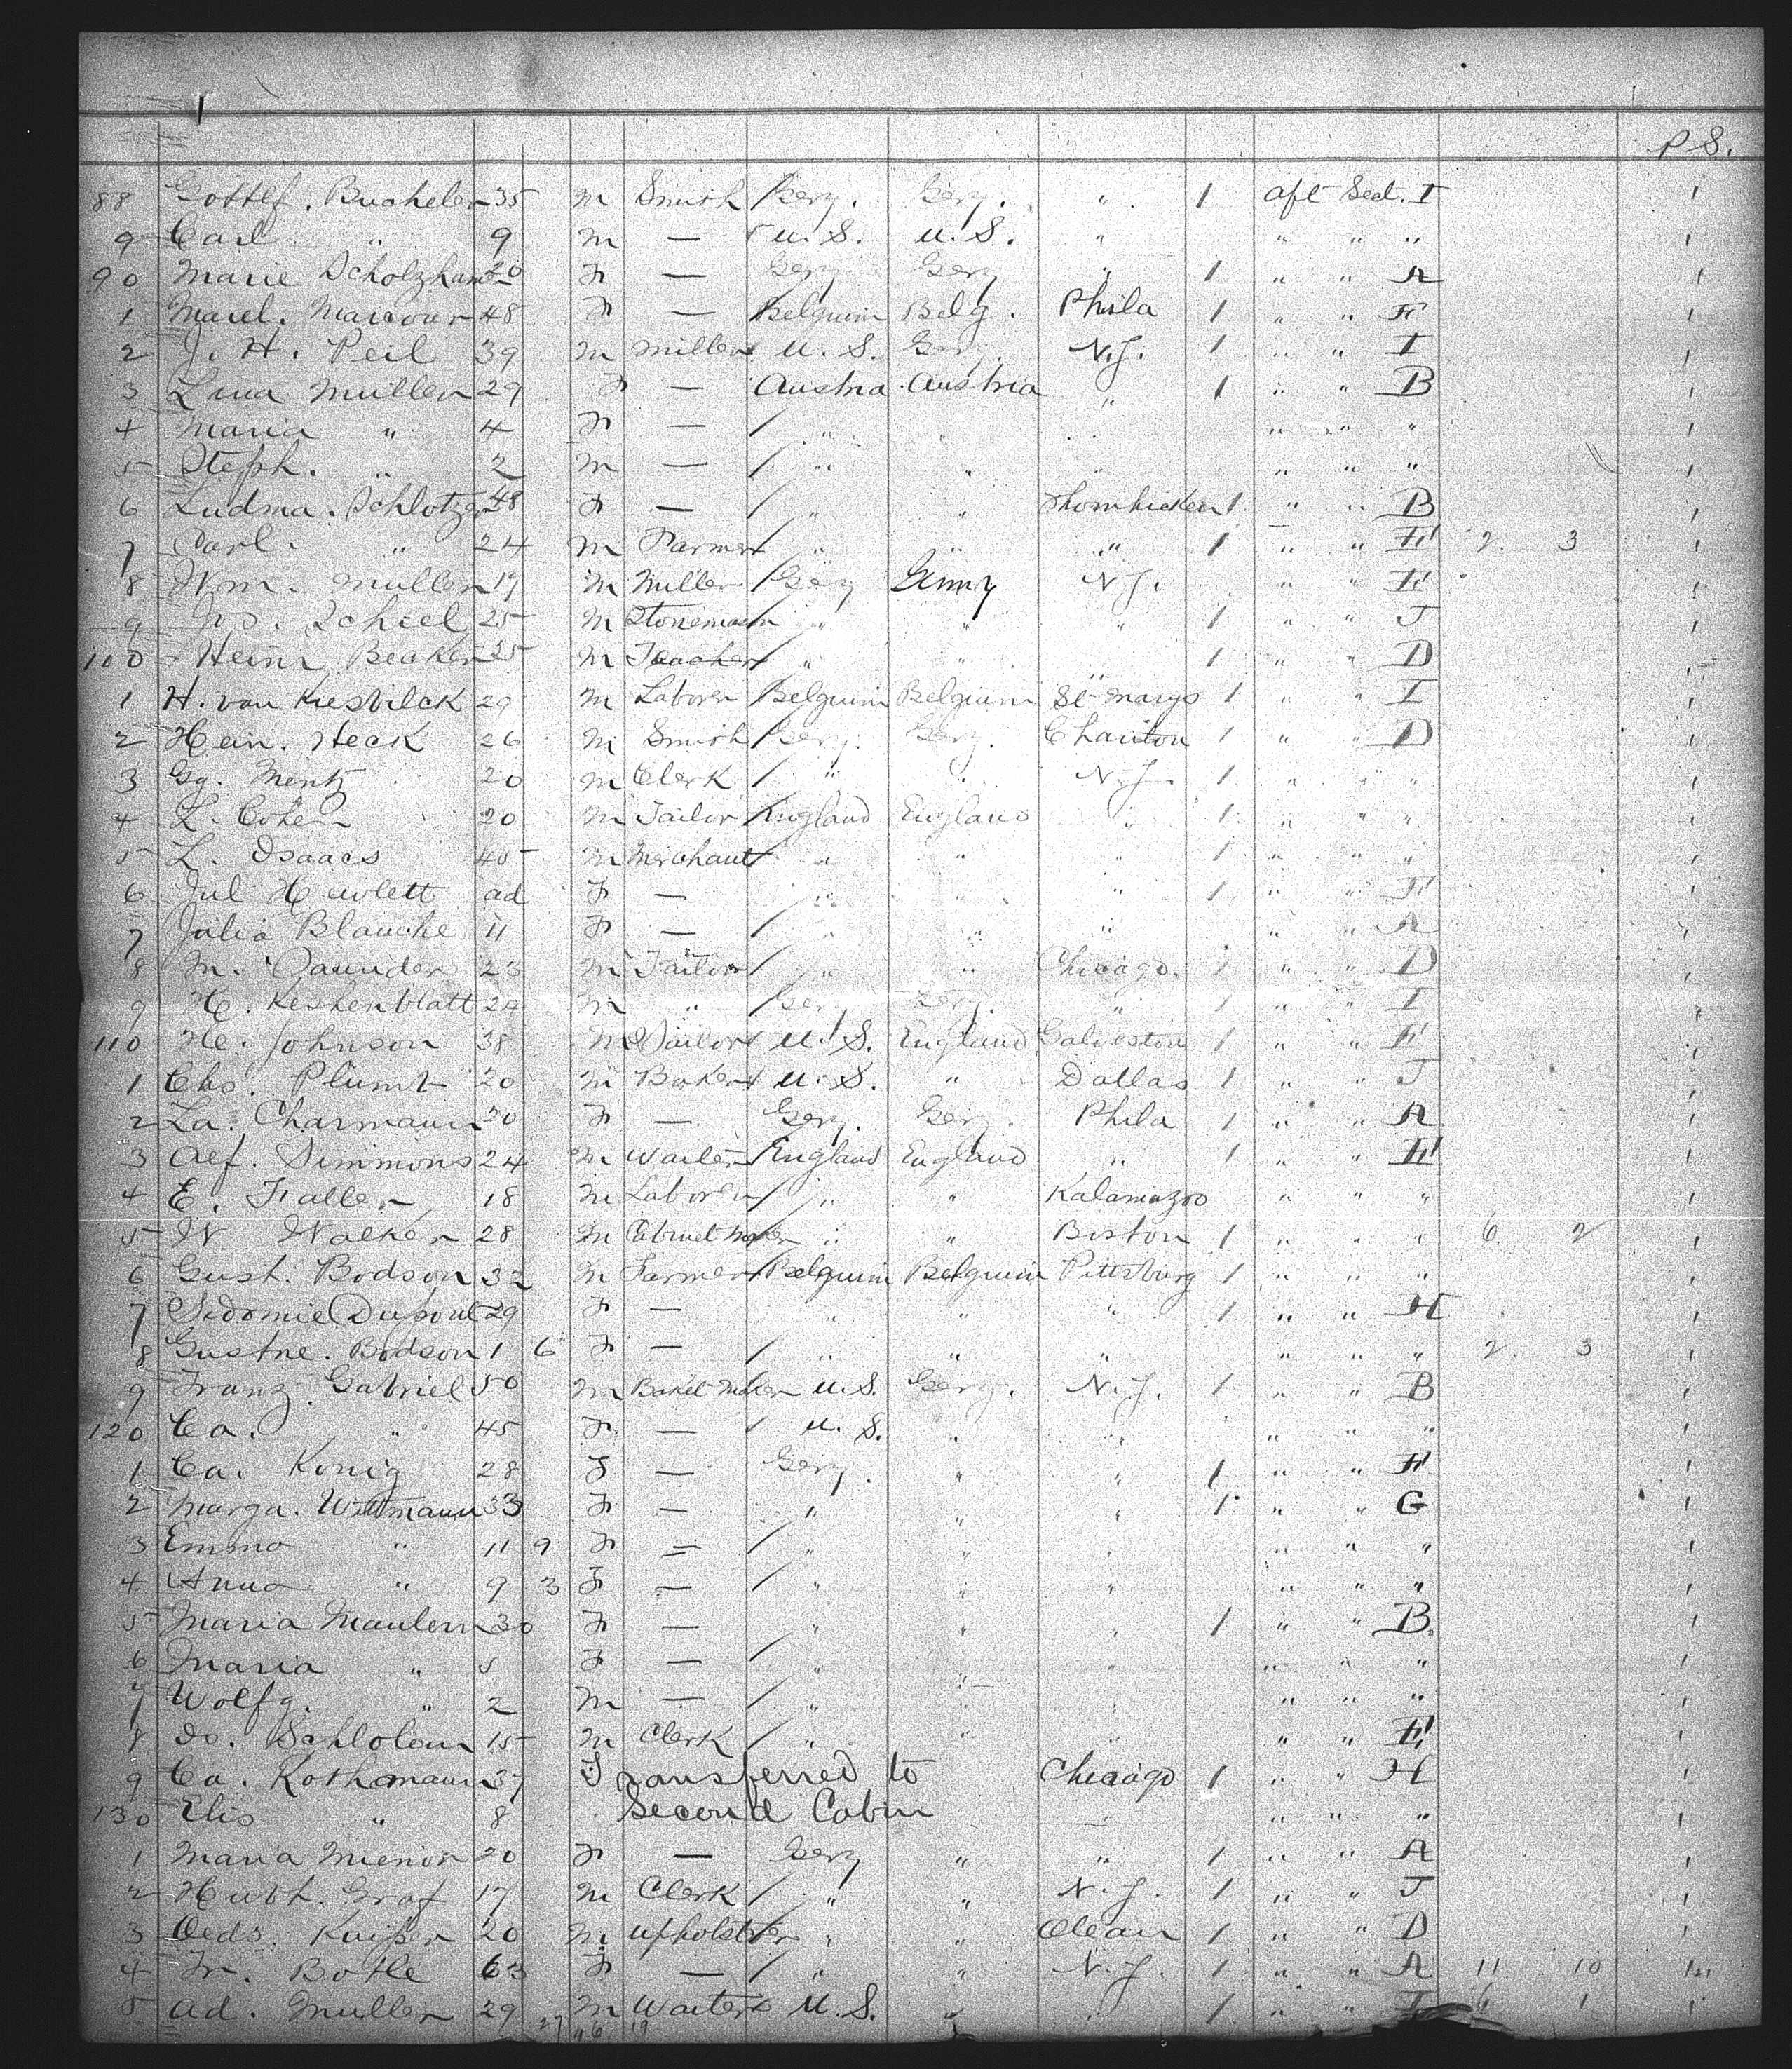 P S.
88 Gottlf. Bucheler 35 M Smith Gery. Gery. " 1 Aft Sect. I 1
9 Carl " 9 M — U. S. U. S. " " " " 1
90 Marie 20 F — Gery Gery " 1 " " A 1
1 Marcour 48 F — Belguim Belg. Phila 1 " " F 1
2 J. H. Peil 39 M Miller U. S. Gery. N.J. 1 " " I 1
3 Lina Muller 29 F — Austria Austria " 1 " " B 1
4 Maria " 4 F — / " " " " " " 1
5 Steph. " 2 M — / " " " " " " 1
6 Ludma. Schlotzer 48 F — / " " 1 " " B 1
7 Carl " 24 M Farmer / " " " 1 " " F 2. 3 1
8 Wm. Muller 19 M Miller / Gery Germy N.J. " " F 1
9 Schiel 25 M Stonemason " " " 1 " " J 1
100 Heinr Becker 25 M Teacher / " " " 1 " " D 1
1 H. van 29 M Laborer Belguim Belguim St Marys 1 " " I 1
2 Hein. Heck 26 M Smith / Gery. Gery. Chariton 1 " " D 1
3 Gg. Mentz 20 M Clerk / " " N.J. 1 " " " 1
4 L. Cohen 20 M Tailor England England " 1 " " " 1
5 L. Isaacs 45 M Merchant / " " " 1 " " " 1
6 Jul Hewlett ad F — / " " " 1 " " F 1
7 Julia Blanche 11 F — / " " " " " A 1
8 M. Saunder 23 M Tailor / " " Chicago. 1 " " D 1
9 H. Keshenblatt 24 M " / Gery Gery. " 1 " " I 1
110 He. Johnson 38 M Sailor U. S. England Galveston 1 " " F 1
1 Chs. 20 M Baker U. S. " Dallas 1 " " J 1
2 La. Charmann 20 F — Gery. Gery. Phila 1 " " A 1
3 Alf. Simmons 24 M Waiter England England " 1 " " F 1
4 E. 18 M Laborer / " " Kalamazoo " " " 1
5 W Walker 28 M Cabinet Maker " " Boston 1 " " " 6. 2 1
6 Gust. Bodson 32 M Farmer Belguim Belguim Pittsburg 1 " " " 1
7 Sidomie Dupont 29 F — " " " 1 " " H 1
8 Gustne. Bodson 1 6 F — / " " " " " " 2. 3 1
9 Franz Gabriel 50 M Basket Maker U.S. Gery. N.J. 1 " " B 1
120 Ca. " 45 F — / U. S. " " " " " 1
1 Ca. Konig 28 F — Gery. " " 1 " " F 1
2 Marga. Wittmann 33 F — " " " 1 " " G 1
3 Emma " 11 9 F — / " " " " " " 1
4 Anna " 9 3 F — / " " " " " " 1
5 Maria 30 F — / " " " 1 " " B. 1
6 Maria " 5 F — / " " " " " " 1
7 Wolfg. " 2 M — / " " " " " " 1
8 15 M Clerk / " " " " " F 1
9 Ca. Kothmann 37 Transferred to Chicago 1 " " H 1
130 Elis " 8 Second Cabin " " " 1
1 Maria 20 F — Gery " " 1 " " A 1
2 Graf 17 M Clerk / " " N.J. 1 " " J 1
3 20 M Upholsterer " " Olean 1 " " D 1
4 Fr. Botle 63 F — / " " N.J. 1 " " A 11 10 1
5 Ad. Muller 29 M Waiter U. S. " " 1 " " 6 1 1